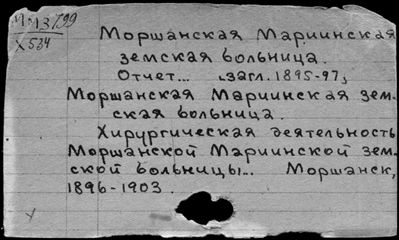 ММЗ799
Х534
Моршанская Мариинская
земская больница.
Отчет... [загл. 1895-97]
Моршанская Мариинская зем-
ская больница.
Хирургическая деятельность
Моршанской Мариинской зем-
ской больницы... Моршанск,
1896-1903.